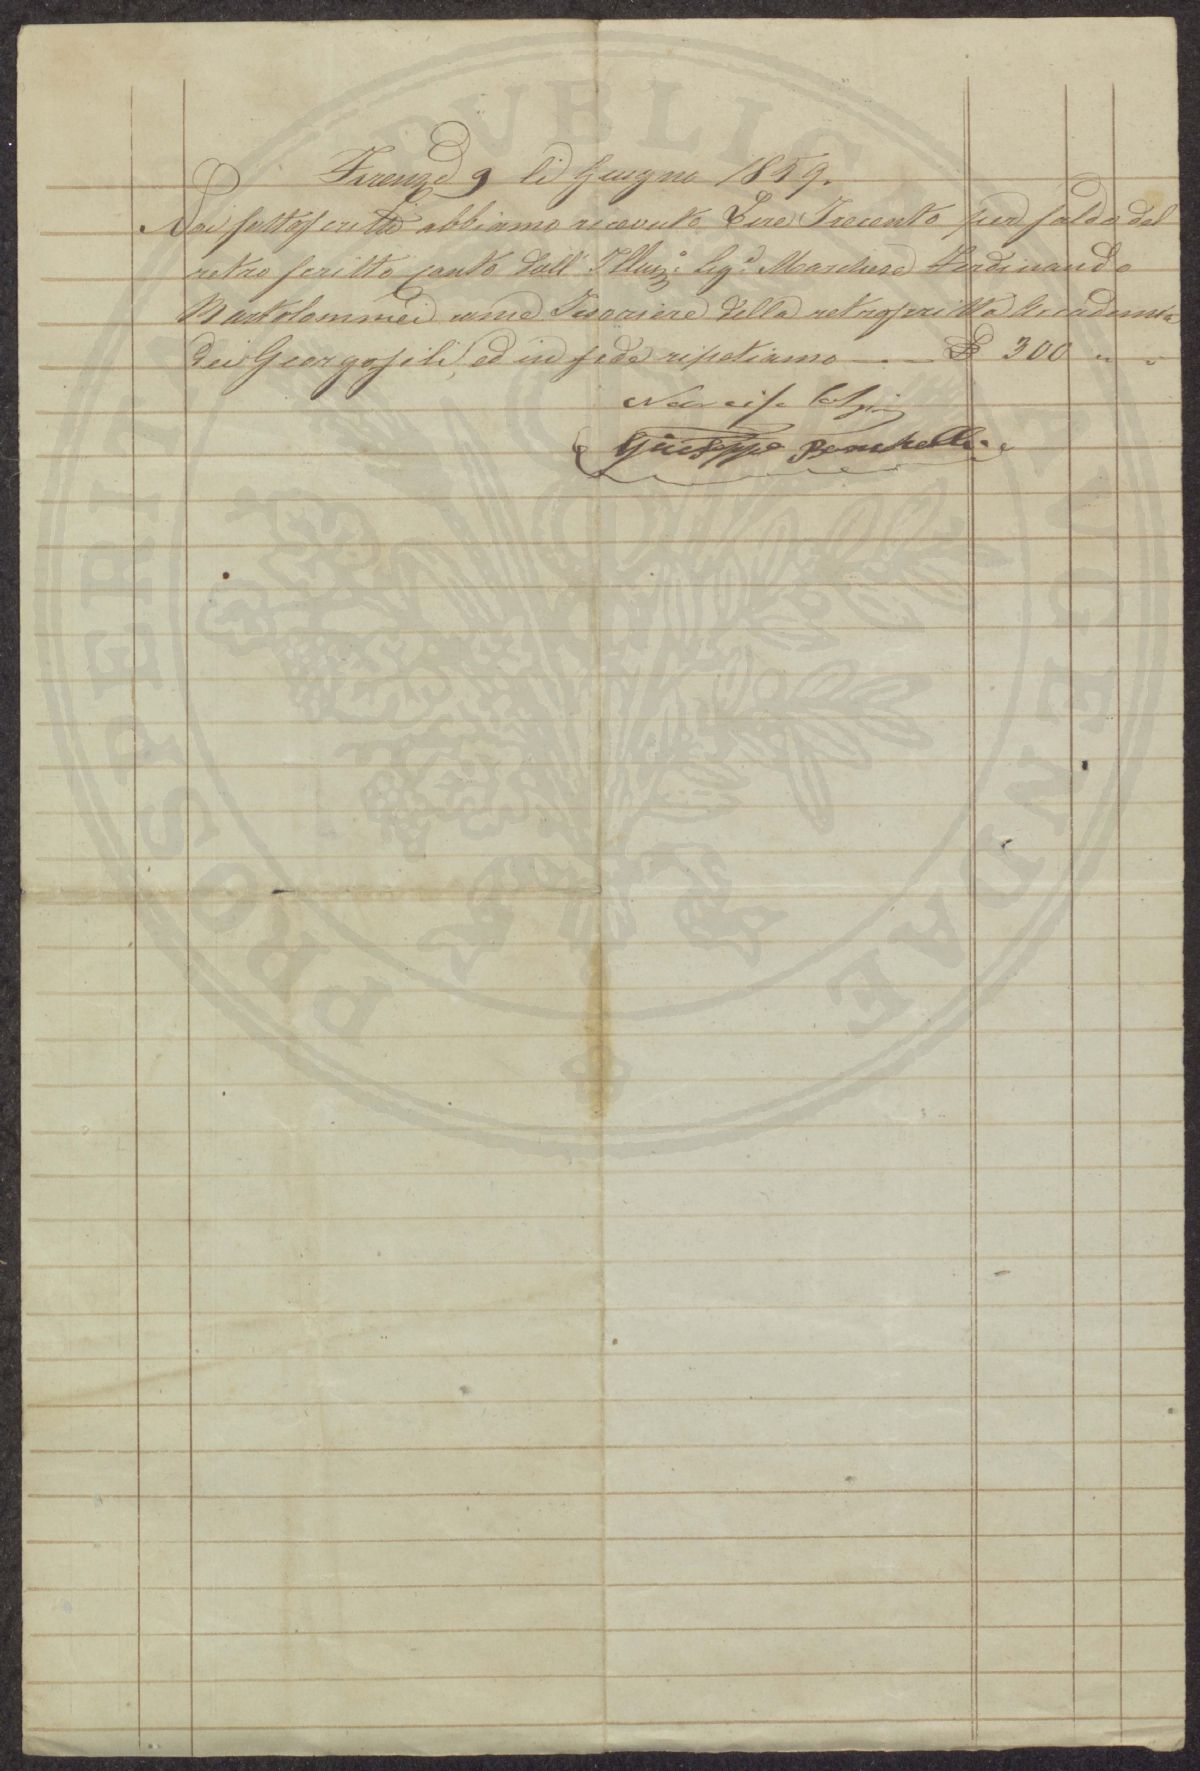 Firenze 9 li Giugno 1859.
Noi sottoscritti abbiamo ricevuto Lire Trecento per saldo del
retro scritto conto dall' Illmo: Sigr: Marchese Ferdinando
Bartolommei come Tesoriere della retroscritta Accademia
dei Georgofili, ed in fede ripetiamo — — £ 300 " "
Narciso
Giuseppe
PROSPERITATI PUBLICAE AUGENDAE